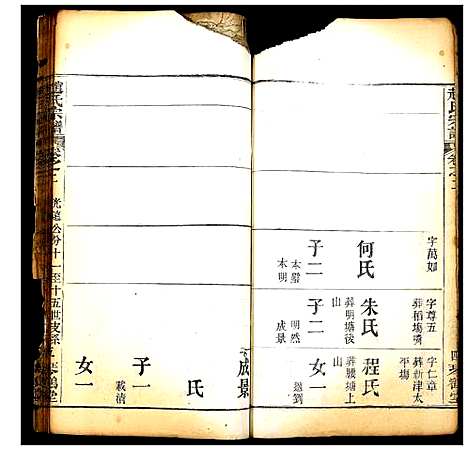 趙氏宗譜
卷之二
字萬如
何氏
子二
本盤
本明
字尊五
葬稻塲灣
朱氏
葬明塘後
山
子二
明然
成景
字仁章
葬新津太
平塲
程氏
葬腰塘上
山
女一
適劉
成景
氏
子一
載清
女一
趙氏宗譜
卷之二
公分十一至十五世支系
琴鶴堂